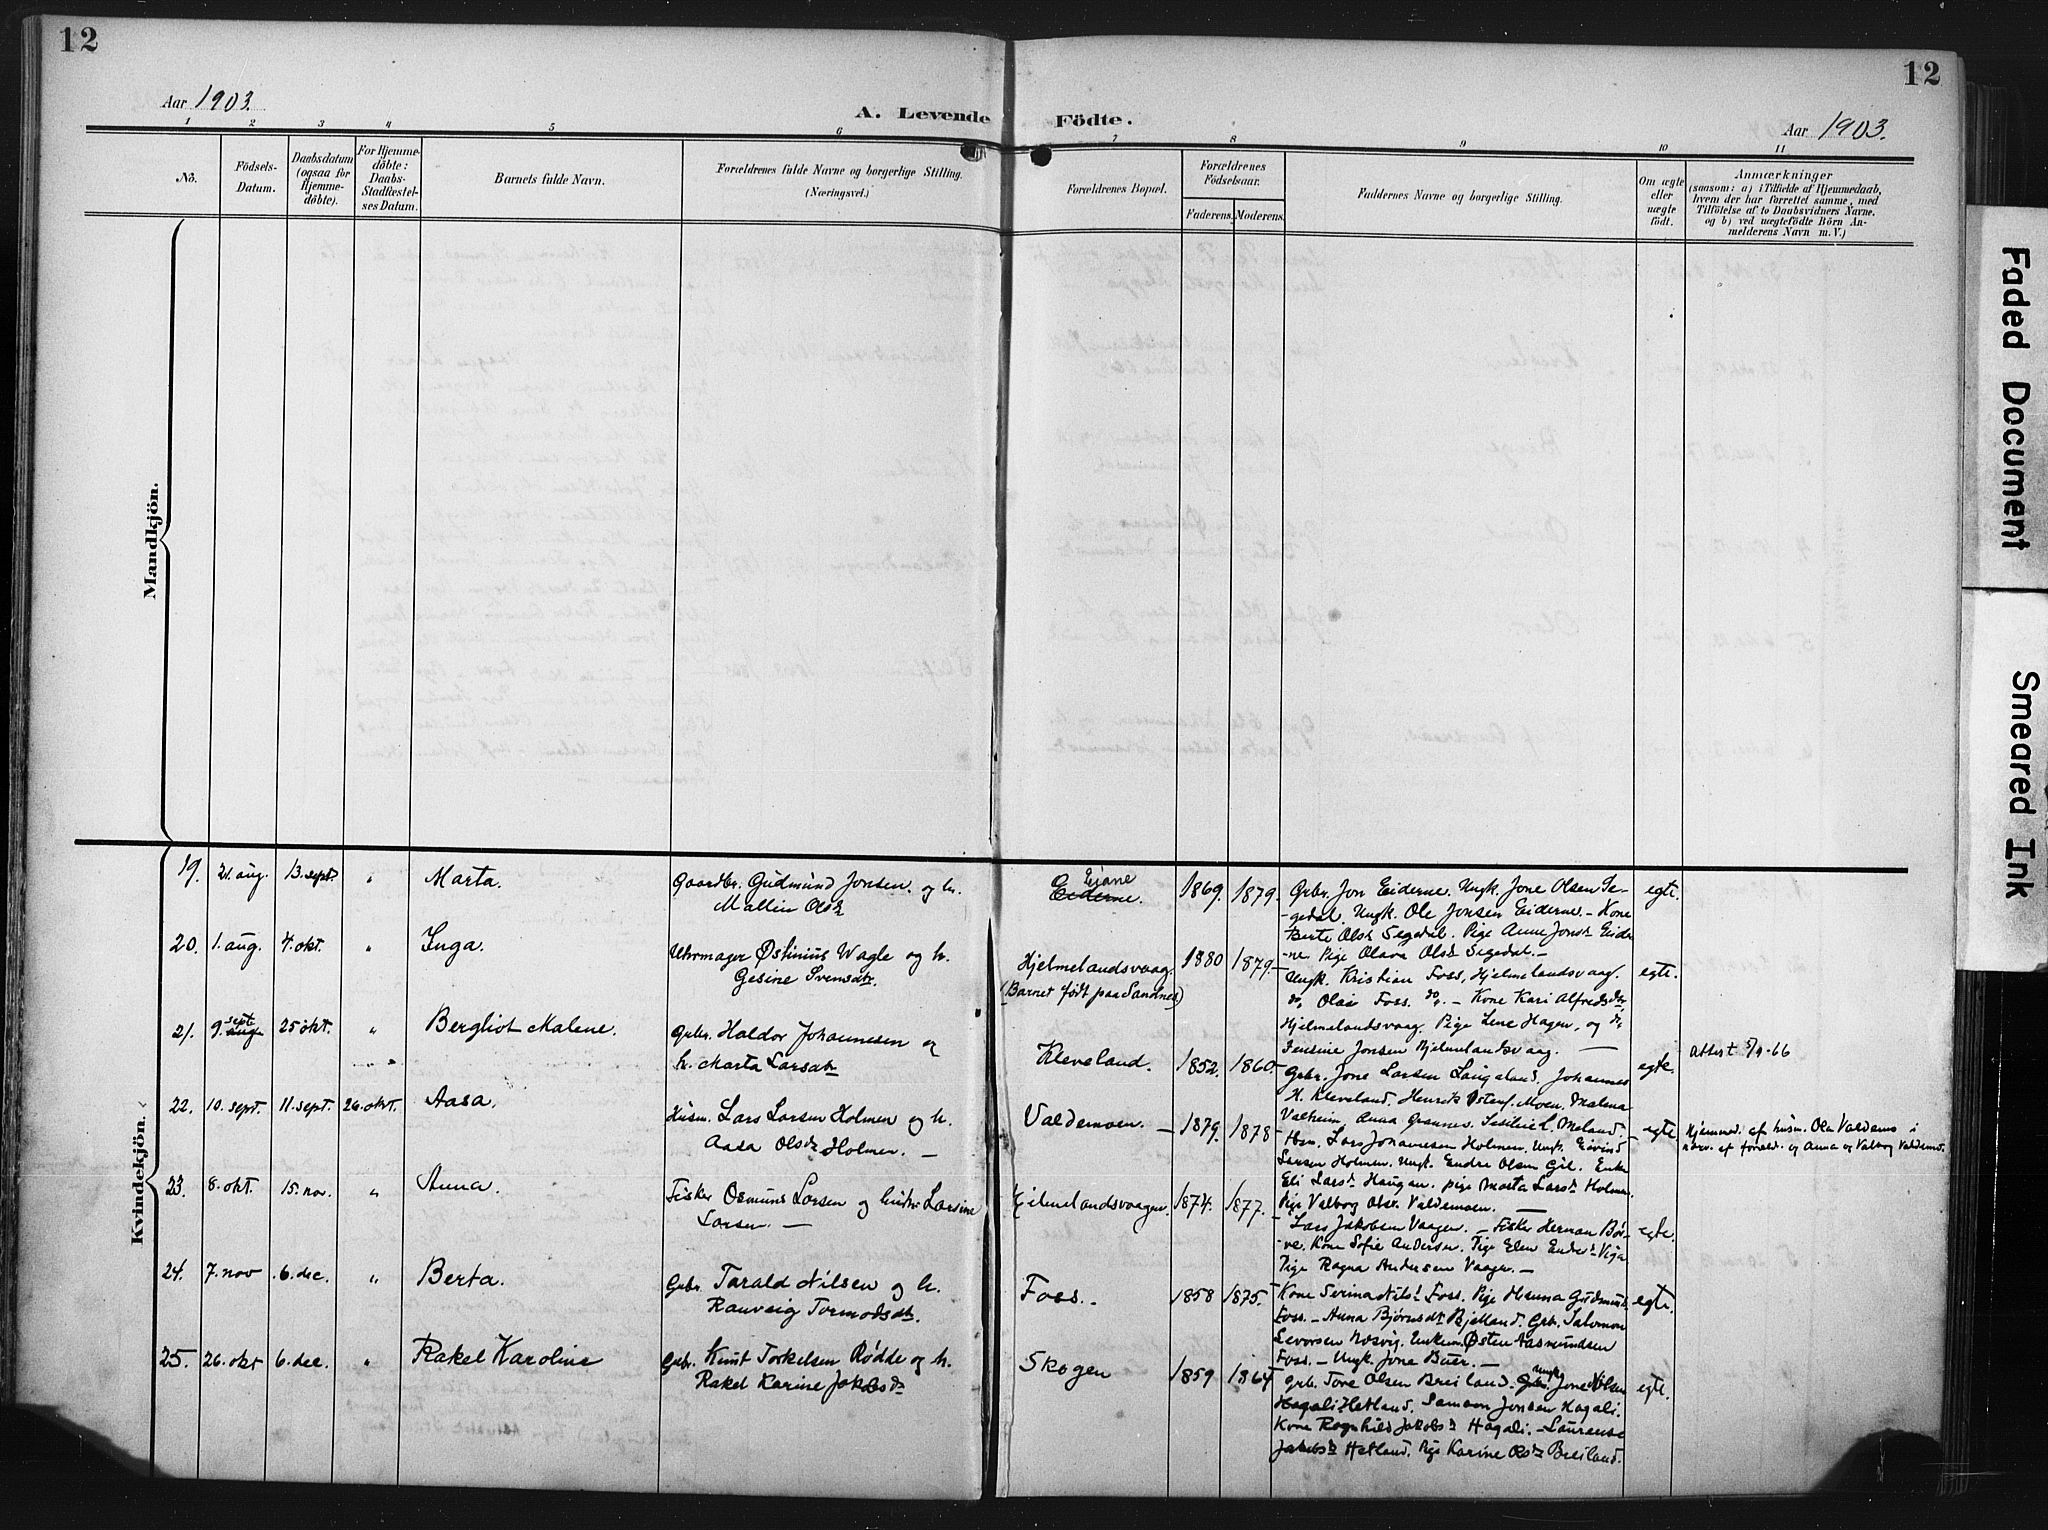 12
12
Aar 1903.
A. Levende Födte.
Aar 1903.
1 2 3 4 5 6 7 8 9 10 11
No.
Födsels-
Datum.
Daabsdatum
(ogsaa for
Hjemme-
döbte).
For Hjemme-
döbte:
Daabs-
Stadfæstel-
ses Datum.
Barnets fulde Navn.
Forældrenes fulde Navne og borgerlige Stilling.
(Næringsvei.)
Forældrenes Bopæl.
Forældrenes
Födselsaar.
Faderens. Moderens.
Faddernes Navne og borgerlige Stilling.
Om ægte
eller
uægte
födt.
Anmærkninger
(saasom: a) i Tilfælde af Hjemmedaab,
hvem der har forrettet samme, med
Tilföielse af to Daabsvidners Navne.
og b) ved uægtefödte Börn An-
melderens Navn m. V.)
Mandkjön.
Kvindekjön.
19. 21. aug. 13. sept. " Marta.
Gaardbr. Gudmund Jonsen og h.
Mallin Olsdr
Eiane
Eiderne. 1869. 1879.
Grbr. Jon Eiderne. Ungk. Jone Olsen Se-
-gedal. Ungk. Ole Jonsen Eiderne. - Kone
Berte Olsdr Segedal. Pige Anne Jonsdr Eider-
-ne. Pige Olava Olsdr Segedal. -
egte.
20. 1. aug. 4. okt. " Inga.
Uhrmager Østinius Wagle og h.
Gesine Svensdtr.
Hjelmelandsvaag.
(Barnet født paa Sandnes)
1880 1879.
Ungk. Kristian Foss, Hjelmelandsvaag.
do, Olai Foss. do. - Kone Kari Alfredsdtr,
Hjelmelandsvaag. Pige Lene Hagen, og do,
Jensine Jonsen Hjelmelandsvaag. -
egte.
21. 9. sept. aug 25 okt. " Bergliot Malene.
Grbr. Haldor Johannesen og
h. Marta Larsdtr
Kleveland. 1852. 1860.
Grbr. Jone Larsen Langeland. Johannes
H. Kleveland. Henrik Østenf. Moen. Malena
Valheim, Anna Grannes. L. Meland.
egte.
Attest 5/9-66
22. 10. sept. 11. sept. 26. okt. Aasa.
Husm. Lars Larsen Holmen og h.
Aasa Olsdr Holmen. -
Valdemoen. - 1879. 1878
Hsm. Lars Johannesen Holmen. Ungk. Eivind
Larsen Holmen. Ungk. Endre Olsen Gil. Enke
Eli Larsdr Haugen. pige Marta Larsdr Holmen.
Pige Valborg Olsdr. Valdemoen. -
egte.
Hjemmed. af husm. Ola Valdemo i
nærv. af foræld. og Anna og Valborg Valdemo.
23. 8. okt. 15. nov. " Anna.
Fisker Osmund Larsen og hustru Larsine
Larsen. -
Hjelmelandsvaagen. 1874. 1877.
- Lars Jakobsen Vaagen. - Fisker Herman Bør-
-ve. Kone Sofie Andersen. Pige Elen Endresdr Viga
Pige Ragna Andersen Vaagen. -
egte.
24. 7. nov 6. dec. " Berta.
Grbr. Tarald Nilsen og h.
Rauveig Tormodsdtr.
Foss. - 1858 1875.
Kone Serina Nilsdr Foss. Pige Hanna Gudmundsdr
Foss. - Anna Bjørnsdtr Bjelland. Grb. Salomon
Levorsen Nesvig. Østen Aasmundsen
Foss. - Ungk. Jone Buer. -
egte.
25. 26. okt 6. dec. " Rakel Karoline
Grbr. Knut Torkelsen Rødde og h.
Rakel Karine Jakobsdr
Skogen 1859 1864
grb. Tore Olsen Breiland. ungk. Jone Nilsen
Hagali Hetland. Samson Jonsen Hagali.
Kone Ragnhild Jakobsdr Hagali. - Laurense
Jakobsdr Hetland. Pige Karine Olsdr Breiland.
egte.
Faded Document
Smeared Ink